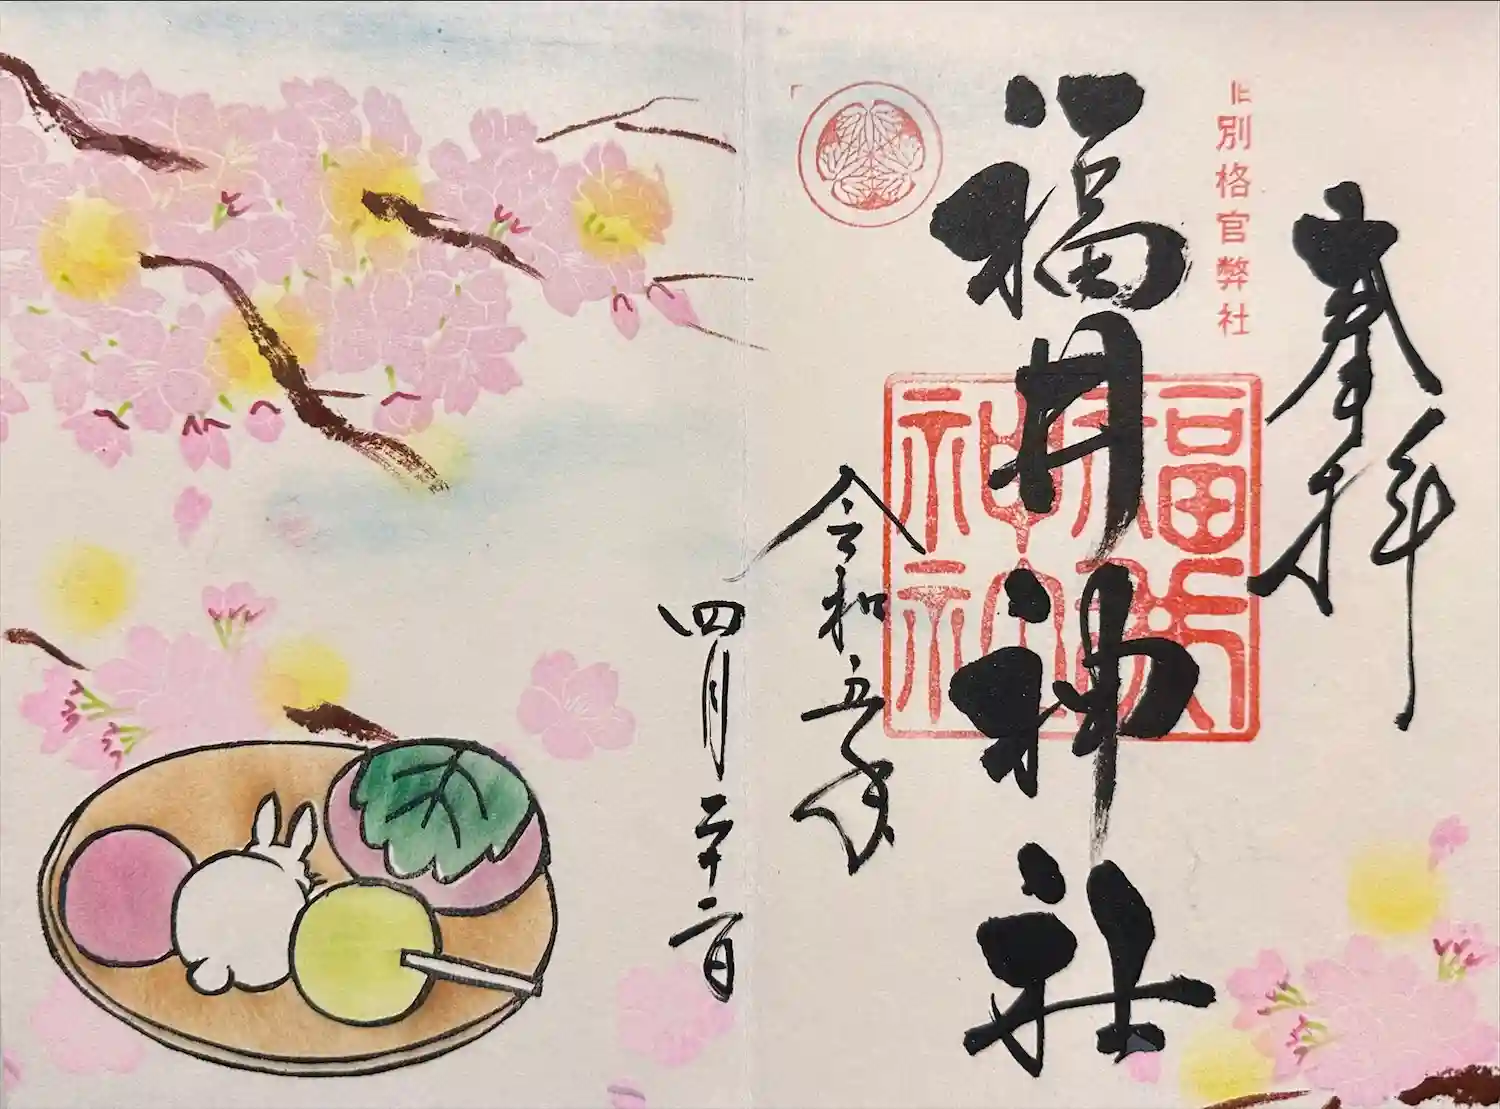 奉拝
旧別格官弊社
福井神社
福井神社
令和五年
四月二十二日